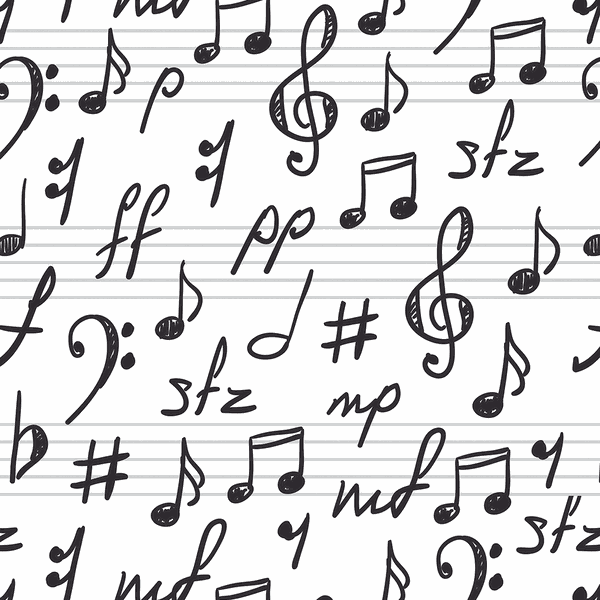 mf
p
sfz
ff
pp
f
sfz
mp
mf
sfz
mf